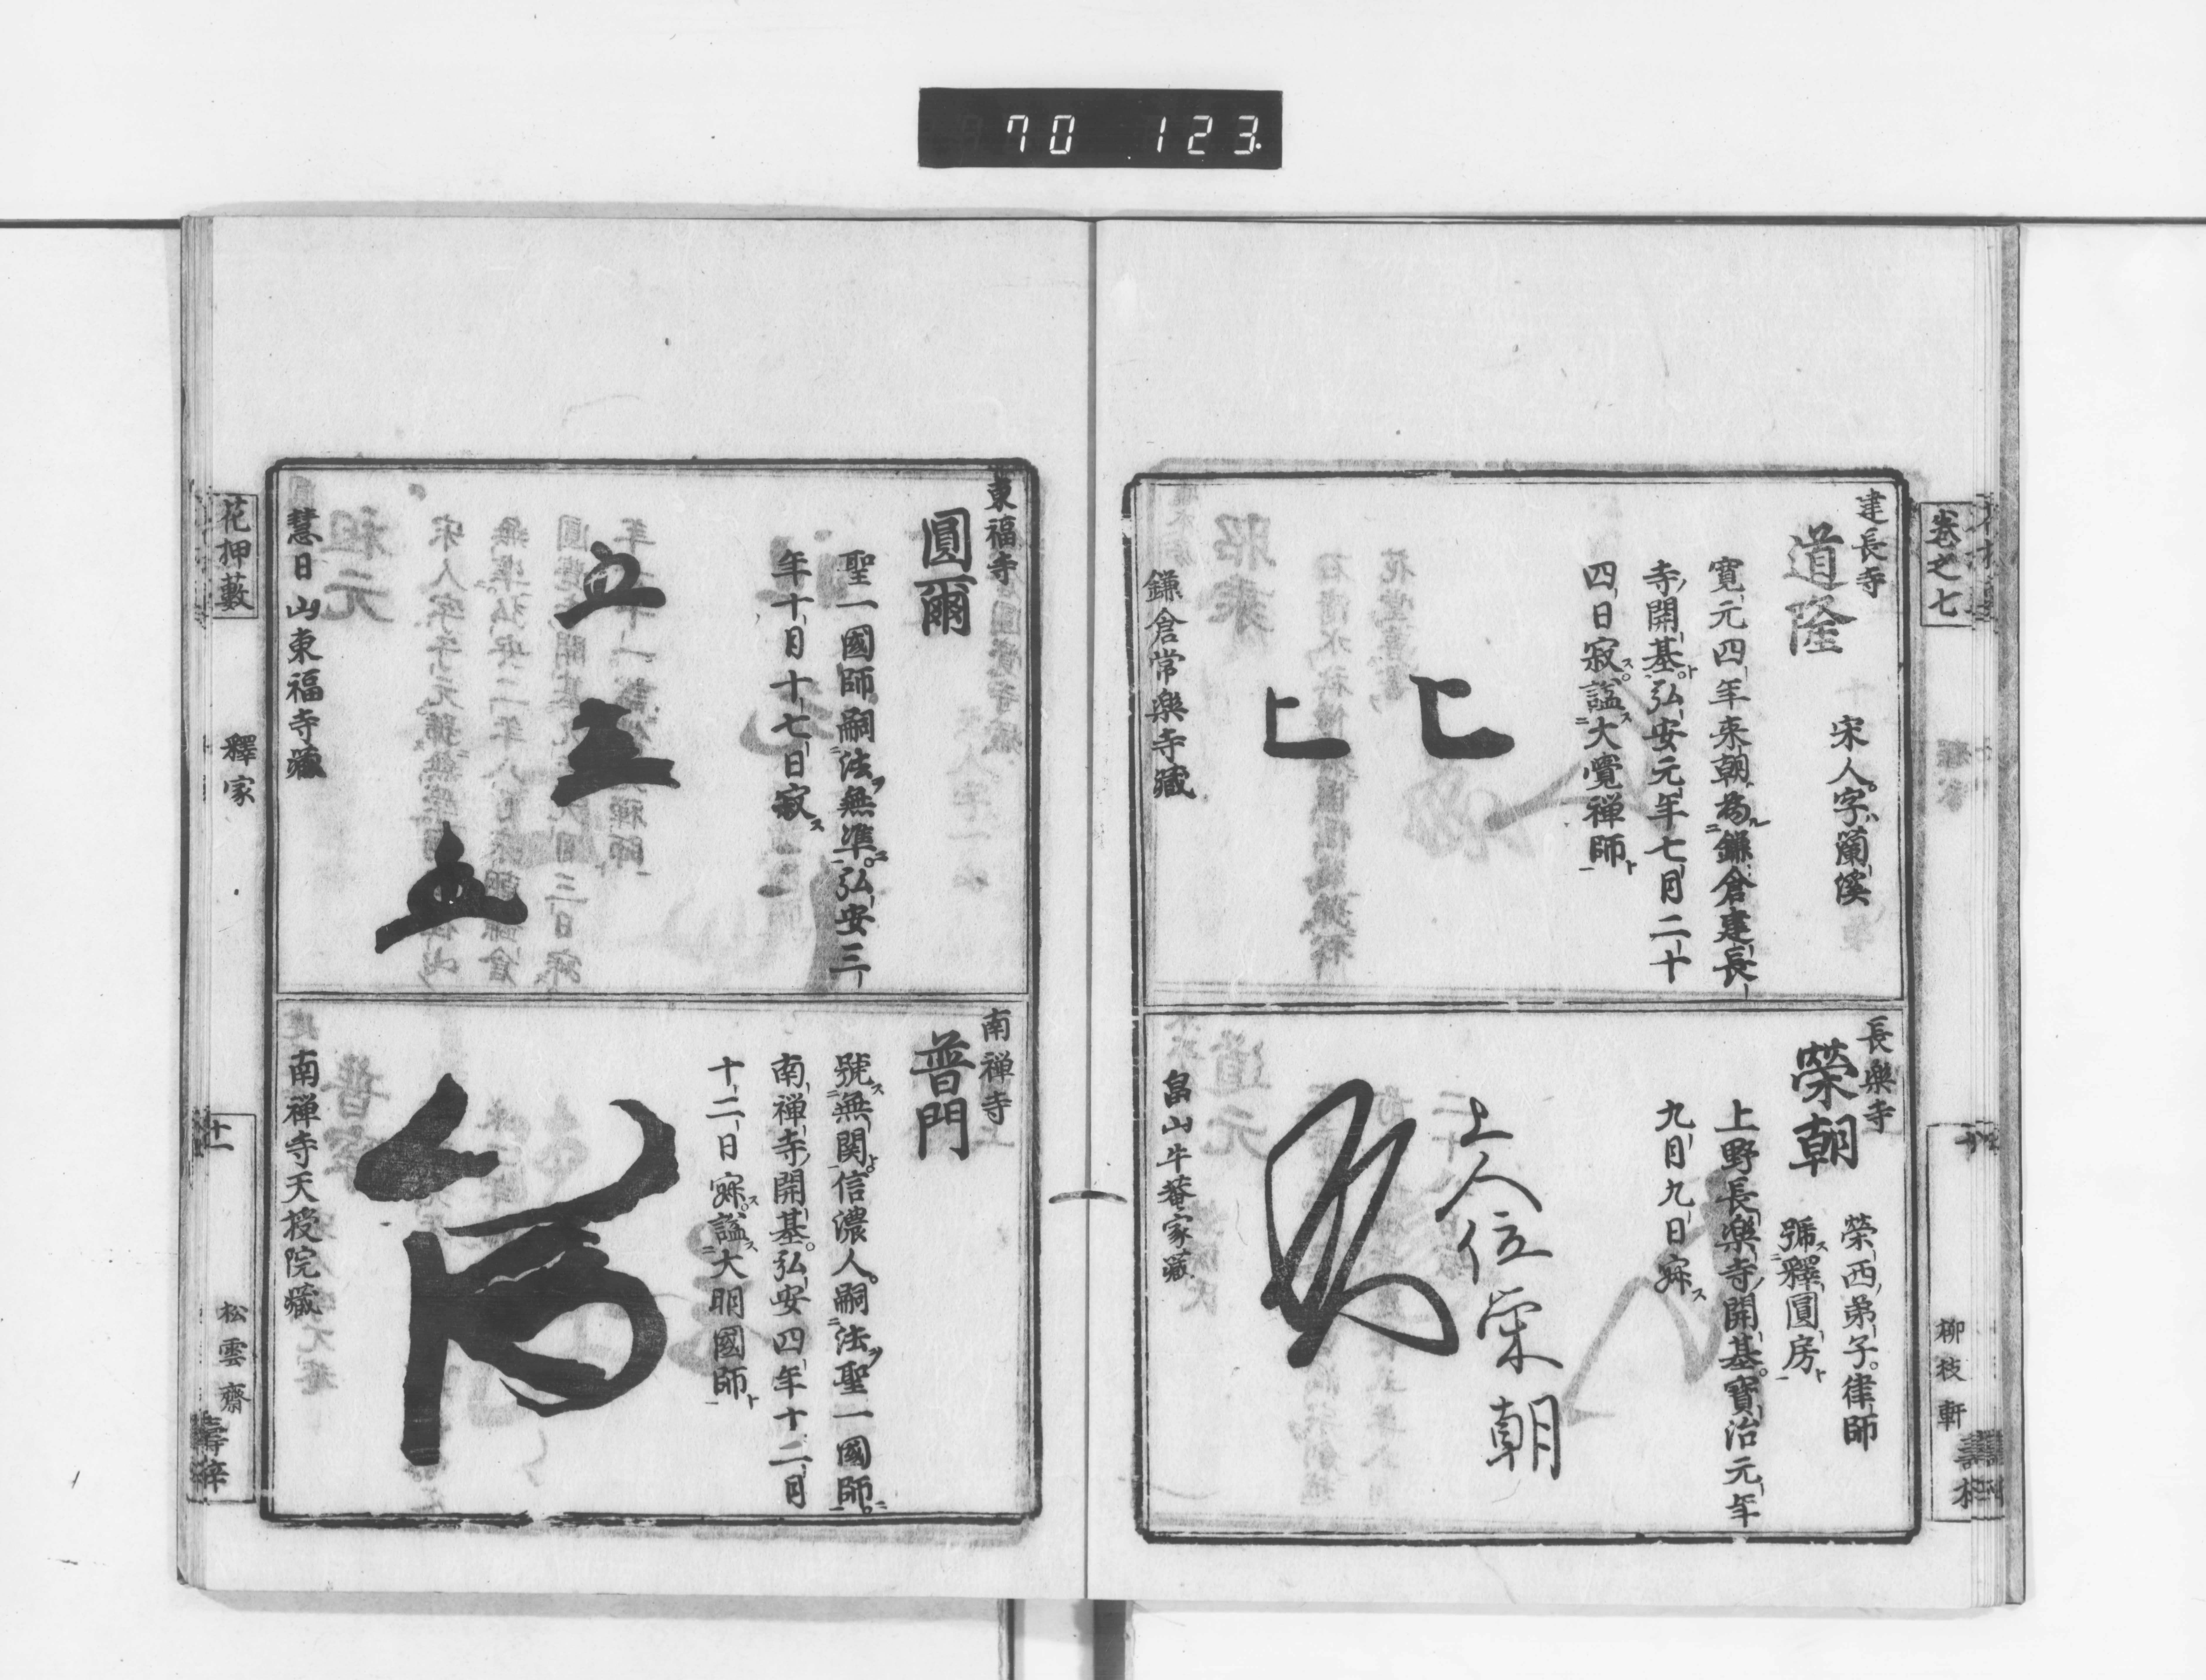 70 123
卷之七
柳枝軒
建長寺
道隆
宋人字蘭溪
寛元四年来朝為鎌倉建長
寺開基弘安元年七月二十
四日寂謚大覺禅師
鎌倉常樂寺藏
長樂寺
榮朝
榮西弟子律師
號釋圓房
上野長樂寺開基寶治元年
九月九日寂
上人位栄朝
畠山牛菴家藏
東福寺
圓爾
聖一國師嗣法無準弘安三
年十月十七日寂
慧日山東福寺藏
南禅寺
普門
號無関信濃人嗣法聖一國師
南禅寺開基弘安四年十二月
十二日寂謚大明國師
南禅寺天授院藏
花押藪
釋家
十一
松雲齋